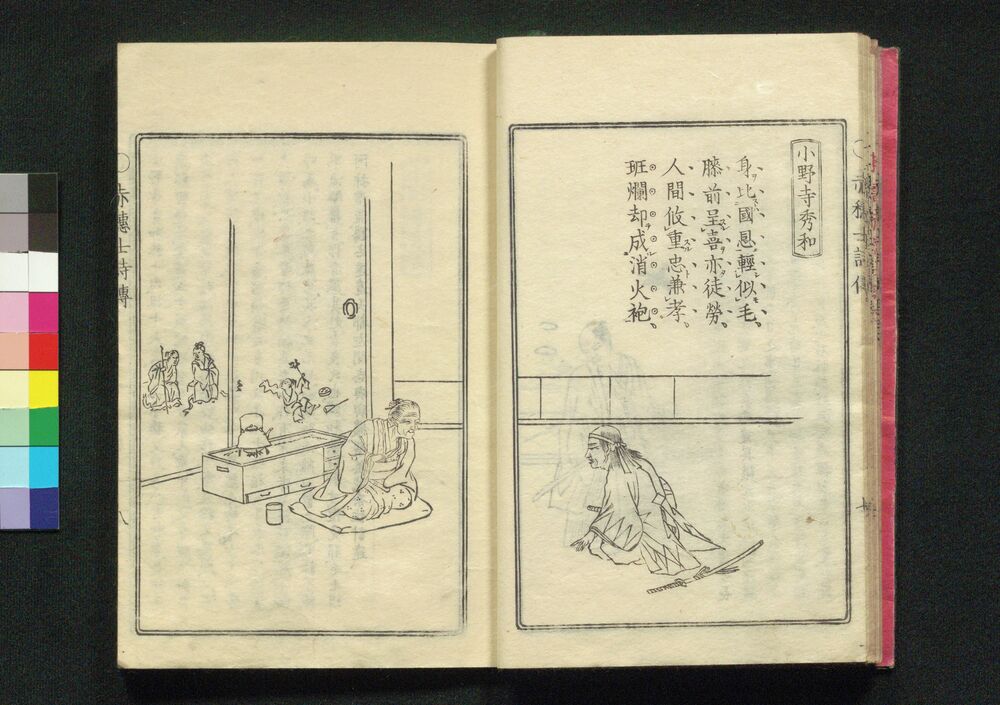 小野寺秀和
身比國恩輕似毛
膝前呈喜亦徒勞
人間攸重忠兼孝
斑爛却成消火袍
赤穗士詩傳
八